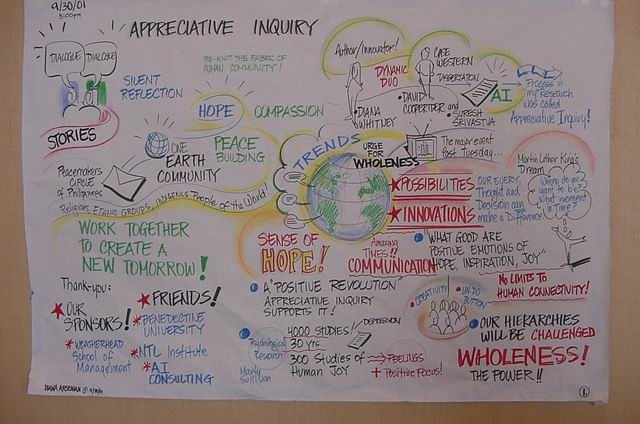 9/30/01
APPRECIATIVE INQUIRY
DIALOGUE DIALOGUE
SILENT
REFLECTION
RE-KNIT THE FABRIC OF
HUMAN COMMUNITY!
HOPE
COMPASSION
STORIES
ONE
EARTH
COMMUNITY
PEACE
BUILDING
Peacemakers
CIRCLE OF
Philippines
Religions, ETHNIC GROUPS, INDIGENOUS People of the World!
Author/Innovator!
DYNAMIC
DUO
CASE
WESTERN
DISSERTATION
•DIANA
WHITNEY
•DAVID
COOPERRIDER and
•SURESH
SRIVASTVA
AI
Process in
my Research
was called
Appreciative Inquiry!
TRENDS
URGE
FOR
WHOLENESS
The major event
past Tuesday...
Martin Luther King's
Dream
★POSSIBILITIES
★INNOVATIONS
OUR EVERY
Thought and
Decision can
make a Difference
Where do we
want to be?
What moment
in Time?
WORK TOGETHER
TO CREATE A
NEW TOMORROW!
SENSE OF
HOPE!
Amazing
TIMES!!
COMMUNICATION
WHAT GOOD ARE
POSITIVE EMOTIONS OF
"HOPE, INSPIRATION, JOY"
NO LIMITS TO
HUMAN CONNECTIVITY!
Thank-you:
★OUR
SPONSORS!
*WEATHERHEAD
School of
Management
★FRIENDS!
*BENEDECTINE
UNIVERSITY
*NTL Institute
*AI
CONSULTING
A "POSITIVE REVOLUTION
APPRECIATIVE INQUIRY
SUPPORTS IT!
Psychological
Research
4000 STUDIES!
30 yrs
DEPRESSION
300 Studies of
Human JOY
FEELINGS
+ Positive Focus!
•CREATIVITY
•UN-DO
BUTTON
OUR HIERARCHIES
WILL BE CHALLENGED
WHOLENESS!
THE POWER!!
1.